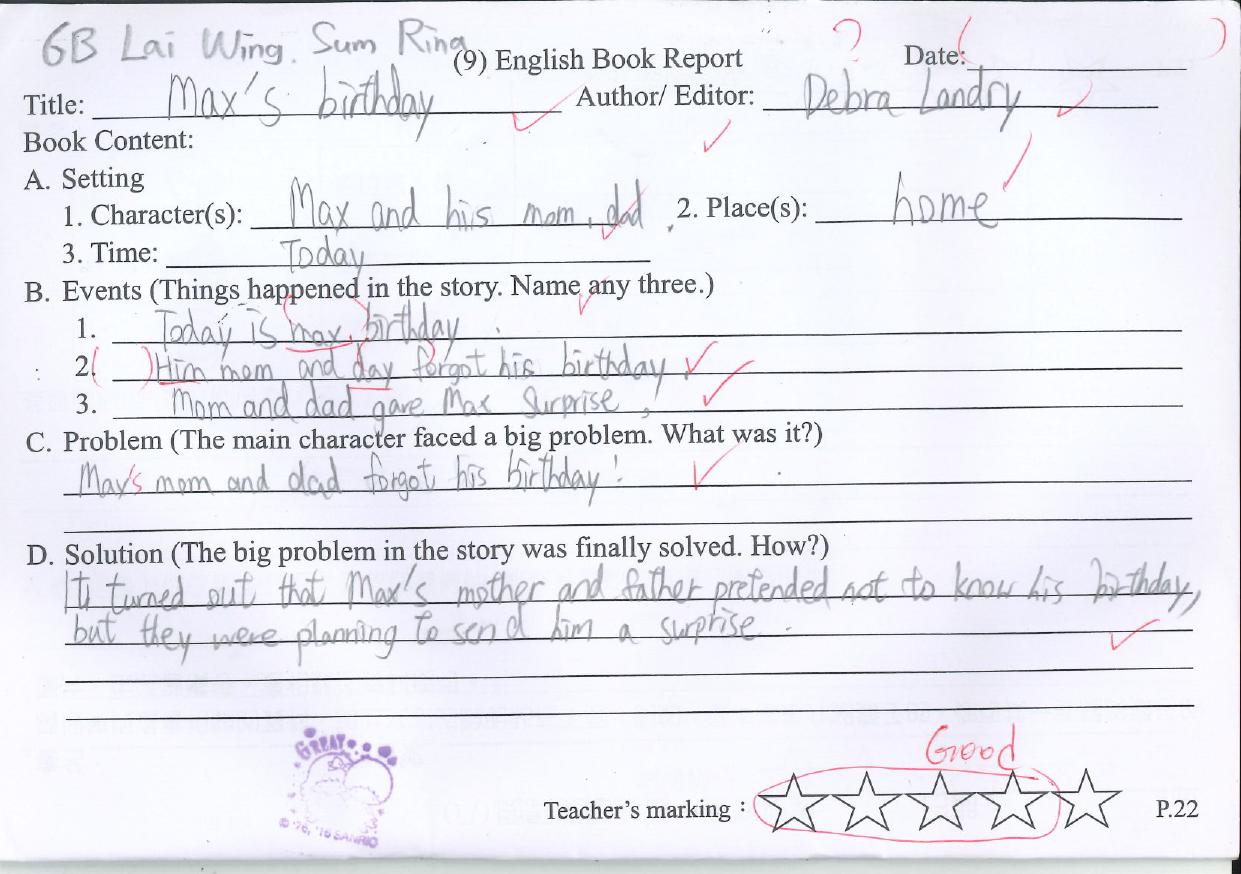 6B Lai Wing. Sum Ring
(9) English Book Report ? Date: ( )
Title: Max's birthday Author/ Editor: Debra Landry
Book Content:
A. Setting
1. Character(s): Max and his mom, dad , 2. Place(s): home
3. Time: Today
B. Events (Things happened in the story. Name any three.)
1. Today is max, birthday .
2. ( ) Him mom and day forgot his birthday
3. Mom and dad gave Max Surprise ,
C. Problem (The main character faced a big problem. What was it?)
Max's mom and dad forgot his birthday !
D. Solution (The big problem in the story was finally solved. How?)
It turned out that Max's mother and father pretended not to know his birthday,
but they were planning to send him a surprise .
GREAT
Good
Teacher's marking : P.22
© '76, '16 SANRIO